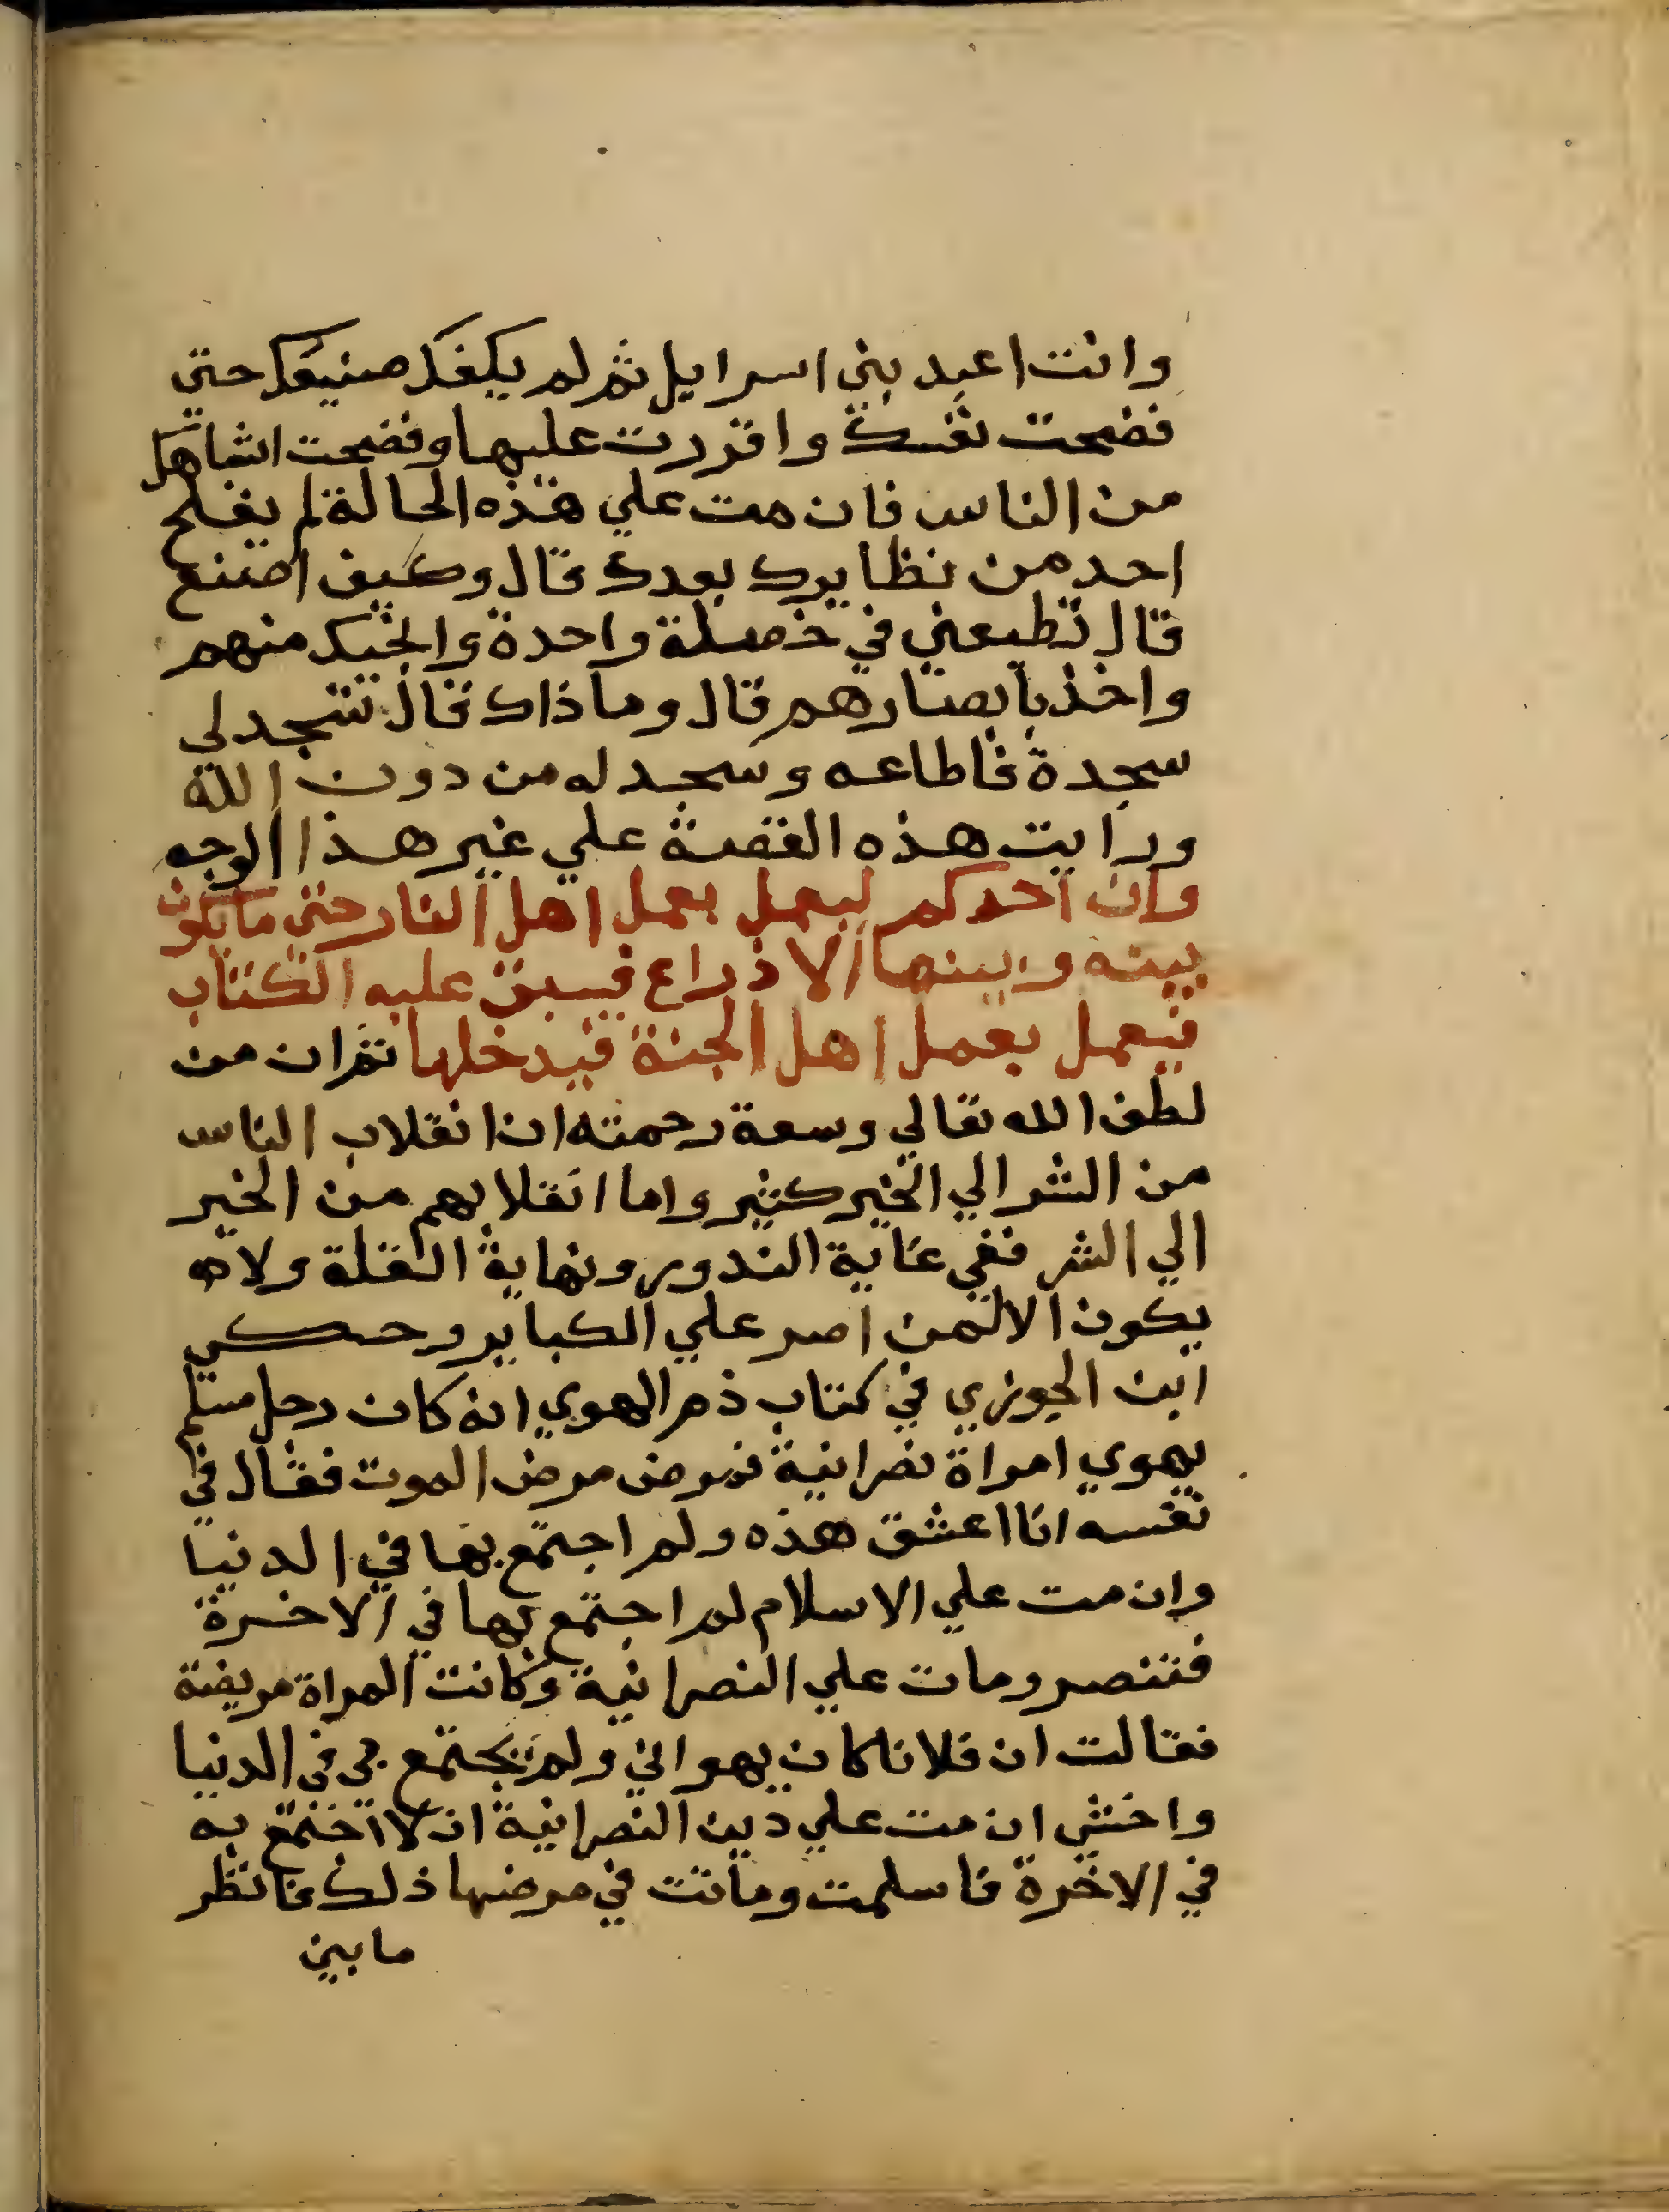 وانت اعبد بني اسرايل ثم لم يكفك صنيعك حتي
فضحت نفسك واقررت عليها وفضحت اشباهك
من الناس فان مت علي هذه الحالة لم يفلح
احد من نظايرك بعدك قال وكيف اصنع
قال تطيعني في خصلة واحدة وانجيك منهم
واخذ بابصارهم قال وما ذاك قال تسجد لي
سجدة فاطاعه وسجد له من دون الله
ورايت هذه القصة علي غير هذا الوجه
وان احدكم ليعمل بعمل اهل النار حتي ما يكون
بينه وبينها الا ذراع فيسبق عليه الكتاب
فيعمل بعمل اهل الجنة فيدخلها ثم ان من
لطف الله تعالي وسعة رحمته ان انقلاب الناس
من الشر الي الخير كثير واما انقلابهم من الخير
الي الشر ففي غاية الندور ونهاية القلة ولا
يكون الا لمن اصر علي الكباير وحكي
ابن الجوزي في كتاب ذم الهوي انه كان رجل مسلم
يهوي امراة نصرانية فمرض مرض الموت فقال في
نفسه انا اعشق هذه ولم اجتمع بها في الدنيا
وان مت علي الاسلام لم اجتمع بها في الاخرة
فتنصر ومات علي النصرانية وكانت المراة مريضة
فقالت ان فلانا كان يهواني ولم يجتمع بي في الدنيا
واخشي ان مت علي دين النصرانية ان لا اجتمع به
في الاخرة فاسلمت وماتت في مرضها ذلك فانظر
ما بين